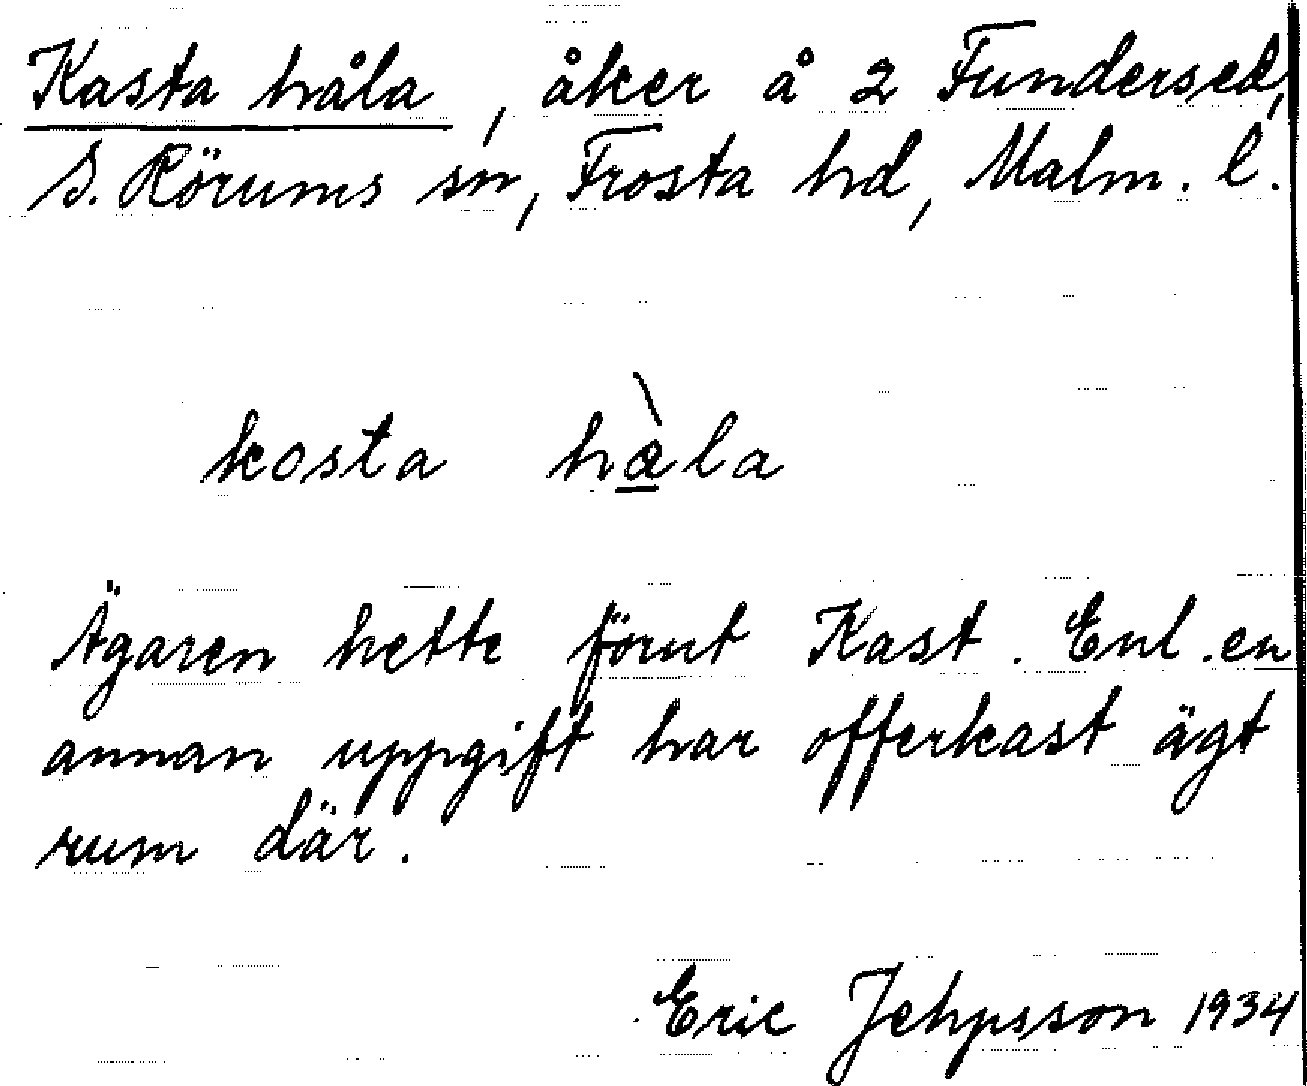 Kasta håla, åker å 2 Fundersed,
S. Rörums sn, Frosta hd, Malm. l.
kosta hàla
Ägaren hette förut Kast. Enl. en
annan uppgift har offerkast ägt
rum där.
Eric Jehpsson 1934